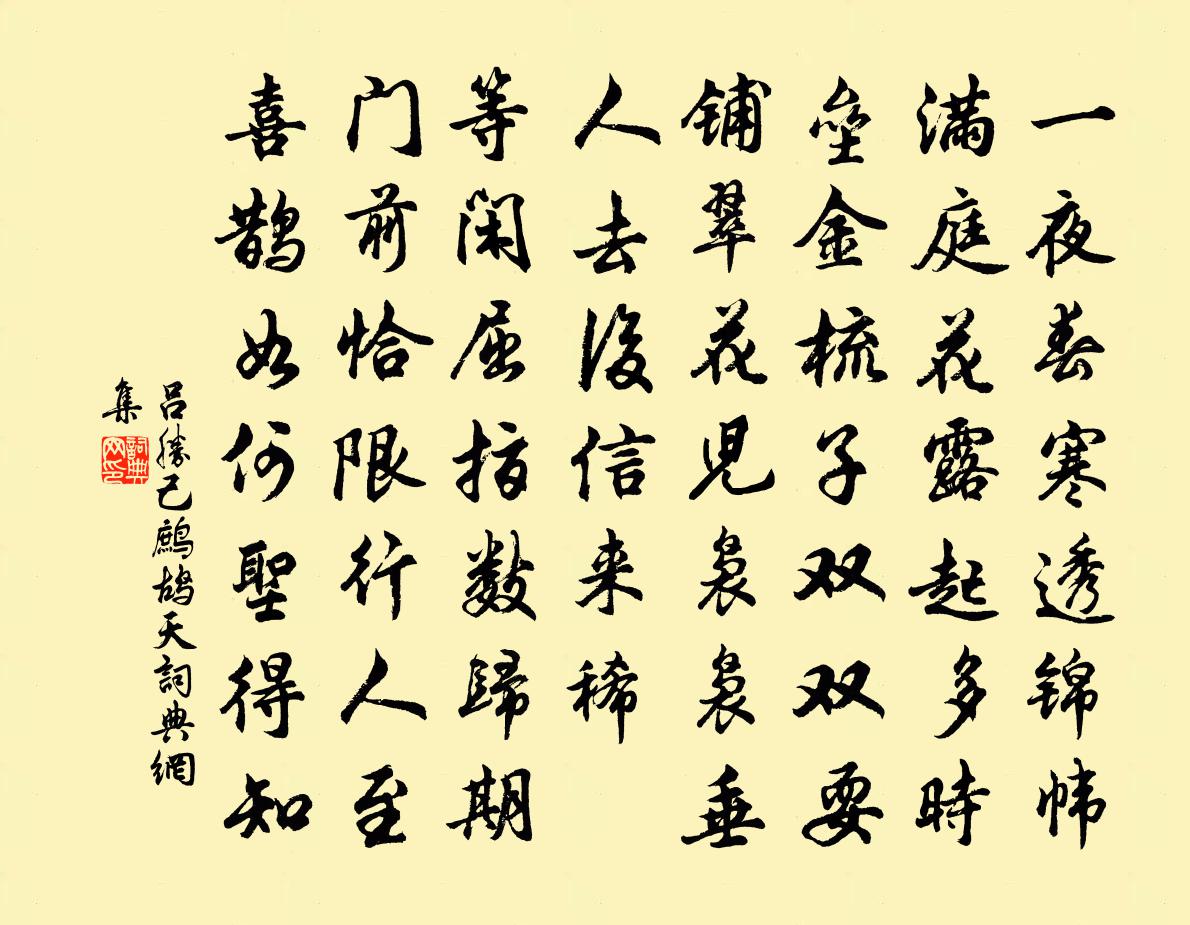 一夜春寒透锦帏
满庭花露起多時
垒金梳子双双耍
铺翠花児袅袅垂
人去後信来稀
等闲屈指数歸期
门前恰限行人至
喜鹊如何聖得知
吕勝己鹧鸪天詞典網
集
詞典网印